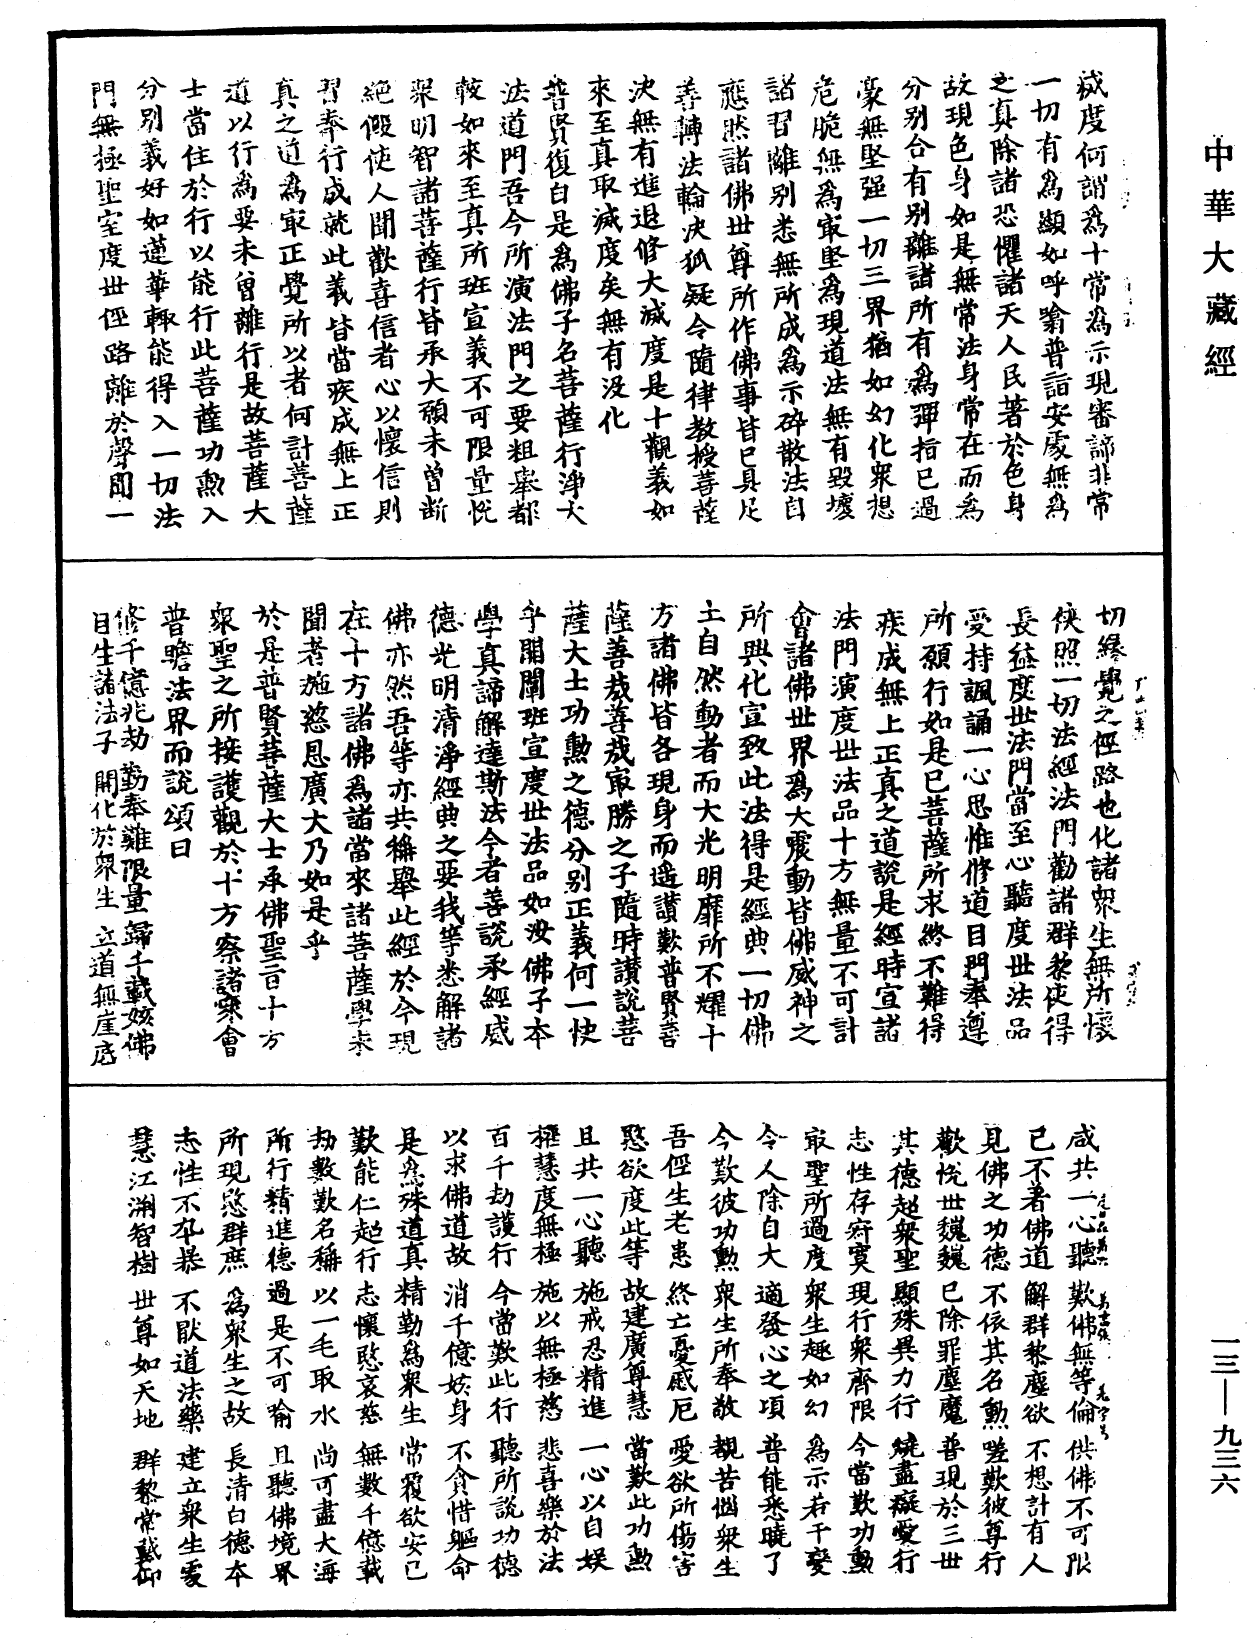 中華大藏經
滅度何謂為十常為示現審諦非常
一切有為顯如呼噏普詣安處無為
之真除諸恐懼諸天人民著於色身
故現色身如是無常法身常在而為
分別合有別離諸所有為彈指已過
豪無堅强一切三界猶如幻化衆想
危脆無為㝡堅為現道法無有毀壞
諸習離別悉無所成為示碎散法自
應然諸佛世尊所作佛事皆已具足
善轉法輪决狐疑令隨律教授菩薩
决無有進退修大滅度是十觀義如
來至真取滅度矣無有没化
普賢復白是為佛子名菩薩行淨大
法道門吾今所演法門之要粗舉都
較如來至真所班宣義不可限量恱
衆明智諸菩薩行皆承大願未曾斷
絕假使人聞歡喜信者心以懷信則
習奉行成就此義皆當疾成無上正
真之道為㝡正覺所以者何計菩薩
道以行為要未曾離行是故菩薩大
士當住於行以能行此菩薩功勳入
分別義好如蓮華輙能得入一切法
門無極聖室度世徑路離於聲聞一
切緣覺之徑路也化諸衆生無所懷
俠照一切法經法門勸諸群黎使得
長益度世法門當至心聽度世法品
受持諷誦一心思惟修道目門奉遵
所願行如是已菩薩所求終不難得
疾成無上正真之道說是經時宣諸
法門演度世法品十方無量不可計
會諸佛世界為大震動皆佛威神之
所興化宣致此法得是經典一切佛
土自然動者而大光明靡所不耀十
方諸佛皆各現身而遥讃歎普賢菩
薩善哉善哉㝡勝之子隨時讃說菩
薩大士功勳之德分別正義何一快
乎開闡班宣度世法品如汝佛子本
學真諦解達斯法今者善說承經威
德光明清淨經典之要我等悉解諸
佛亦然吾等亦共稱舉此經於今現
在十方諸佛為諸當來諸菩薩學未
聞者施慈恩廣大乃如是乎
於是普賢菩薩大士承佛聖旨十方
衆聖之所接護觀於十方察諸衆會
普瞻法界而說頌曰
修千億兆劫 勤奉難限量 歸千載姟佛
自生諸法子 開化於衆生 立道無崖底
咸共一心聽 歎佛無等倫 供佛不可限
已不著佛道 解群黎塵欲 不想計有人
見佛之功德 不依其名勳 嗟歎彼尊行
歡恱世巍巍 已除罪塵魔 普現於三世
其德超衆聖 顯殊異力行 燒盡癡愛行
志性存寂寞 現行衆齊限 今當歎功勳
㝡聖所過度 衆生趣如幻 為示若干變
令人除自大 適發心之項 普能悉曉了
今歎彼功勳 衆生所奉敬 覩苦惱衆生
吾俓生老患 終亡憂慼厄 愛欲所傷害
愍欲度此等 故建廣尊慧 當歎此功勳
且共一心聽 施戒忍精進 一心以自娱
權慧度無極 施以無極慈 悲喜樂於法
百千劫護行 今當歎此行 聽所說功德
以求佛道故 消千億姟身 不貪惜軀命
是為殊道真 精勤為衆生 常覆欲安已
歎能仁超行 志懷愍哀慈 無數千億載
劫數歎名稱 以一毛取水 尚可盡大海
所行精進德 過是不可喻 且聽佛境界
所現愍群庶 為衆生之故 長清白德本
志性不卒暴 不猒道法藥 建立衆生處
慧江淵智樹 世尊如天地 群黎常戴仰
一三—九三六